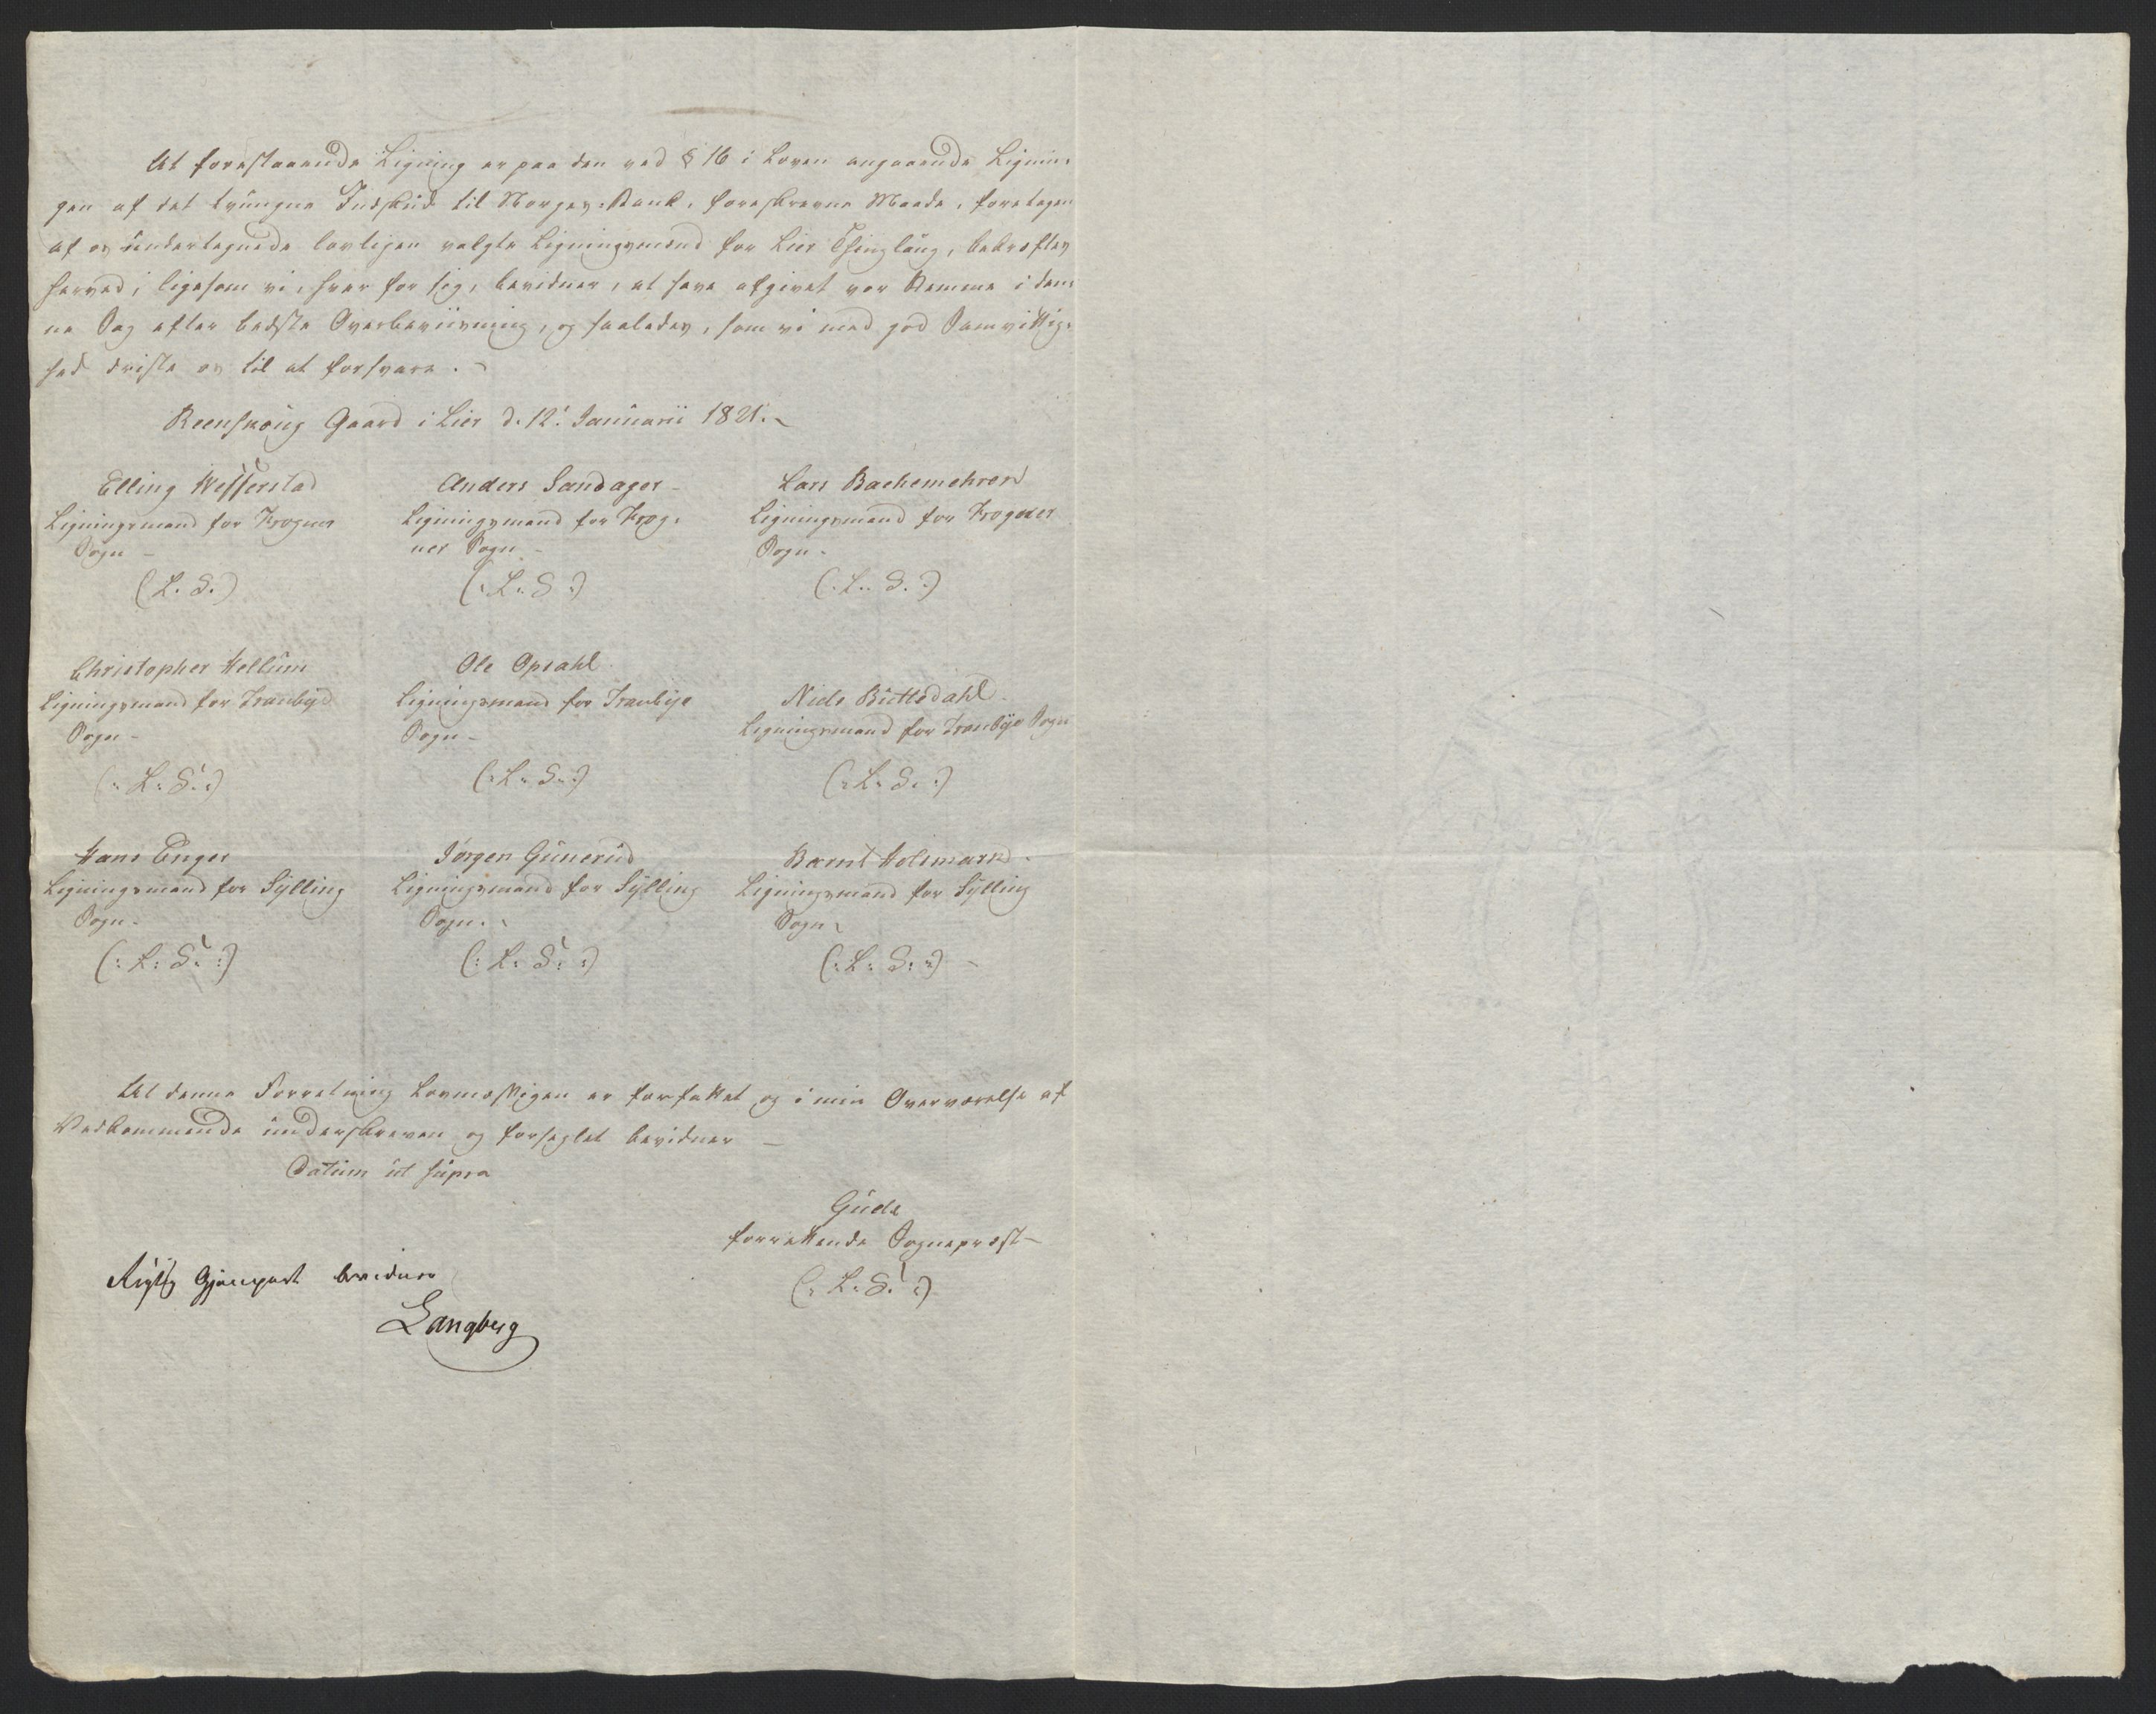 At forestaaende Ligning er paa den ved § 16 i Loven angaaende Lignin-
gen af det tvungne Indskud til Norges Bank, foreskrevne Maade, foretagen
af os undertegnede lovligen valgte Ligningsmænd for Lier Thinglaug, bekræftes
herved, ligesom vi, hver for sig, bevidner, at have afgivet vor Stemme i den-
ne Sag efter bedste Overbeviisning, og saaledes, som vi med god Samvittig-
hed driste os til at forsvare.
Reenskoug Gaard i Lier d. 12. Januarii 1821.
Elling Wefferstad Anders Sandager Lars Bachemehren
Ligningsmand for Frogner Ligningsmand for Frog- Ligningsmand for Frogner
Sogn ner Sogn Sogn
(L. S.) (: L. S :) (: L. S. :)
Christopher Hellum Ole Opsahl
Ligningsmand for Tranbye Ligningsmand for Tranbye Niels Buttedahl
Sogn Sogn Ligningsmand for Tranbye Sogn
(: L. S. :) (: L. S. :) (: L. S. :)
Hans Enger Jørgen Gunerud Bernt Holsmark
Ligningsmand for Sylling Ligningsmand for Sylling Ligningsmand for Sylling
Sogn Sogn Sogn
(: L. S. :) (: L. S. :) (: L. S. :)
At denne Forretning Lovmæssigen er forfattet og i min Overværelse af
Vedkommende underskreven og forseglet bevidner
Datum ut supra
Gude
forrettende Sognepræst
(: L. S. :)
Rigtig Gjenpart bevidner
Langberg